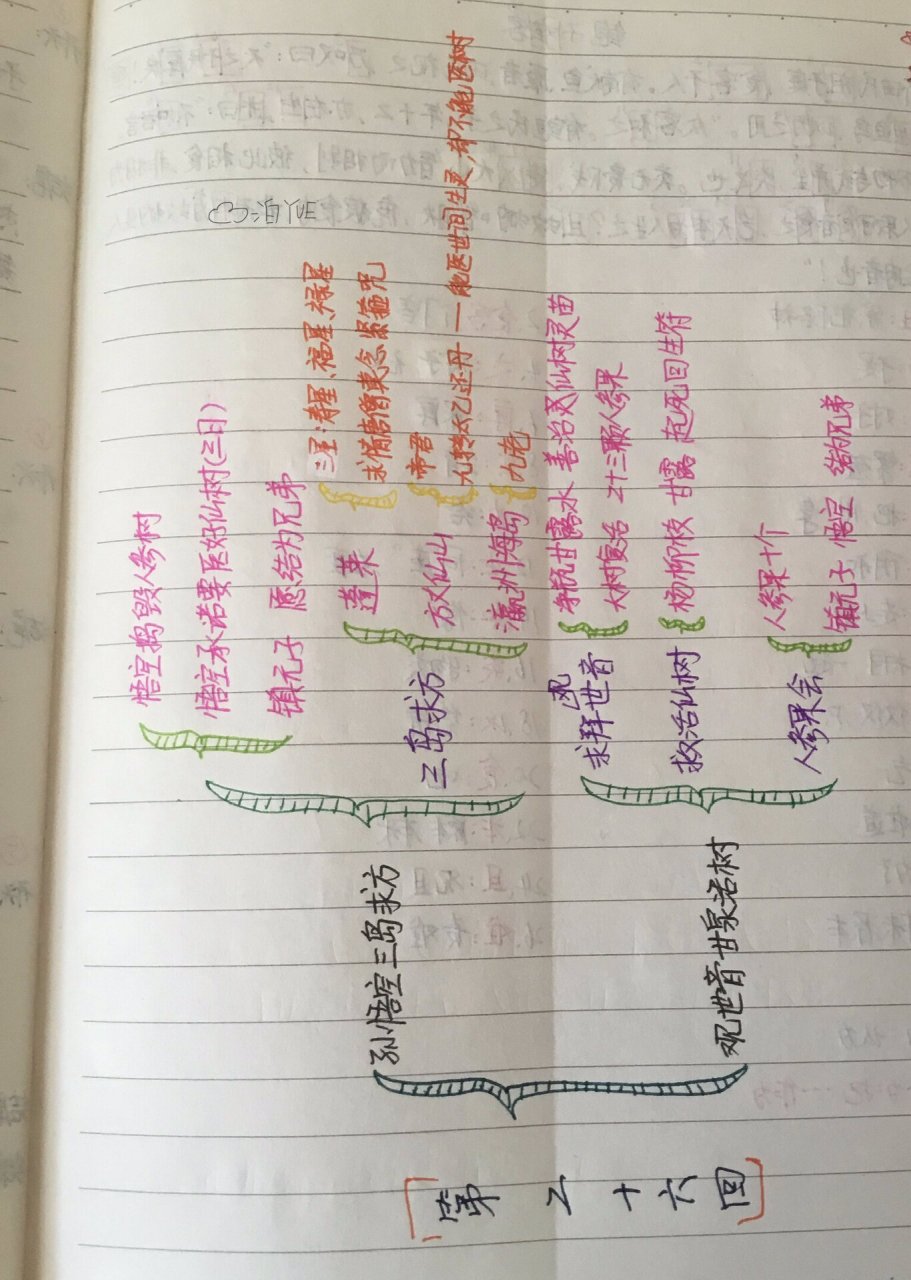 [第二十六回]
孙悟空三岛求方
悟空捣毁人参树
悟空承诺要医好仙树(三日)
镇元子 愿结为兄弟
三岛求方
蓬莱
三星:寿星、福星、禄星
求情唐僧莫念紧箍咒
方丈仙山
帝君
九转太乙还丹——能医世间生灵,却不能医树
瀛洲海岛
九老
观世音甘泉活树
求拜观世音
净瓶甘露水 善治灵仙树灵苗
大树复活 二十三颗人参果
救活仙树
杨柳枝 甘露 起死回生符
人参果会
人参果十个
镇元子 悟空 结为兄弟
泊YUE